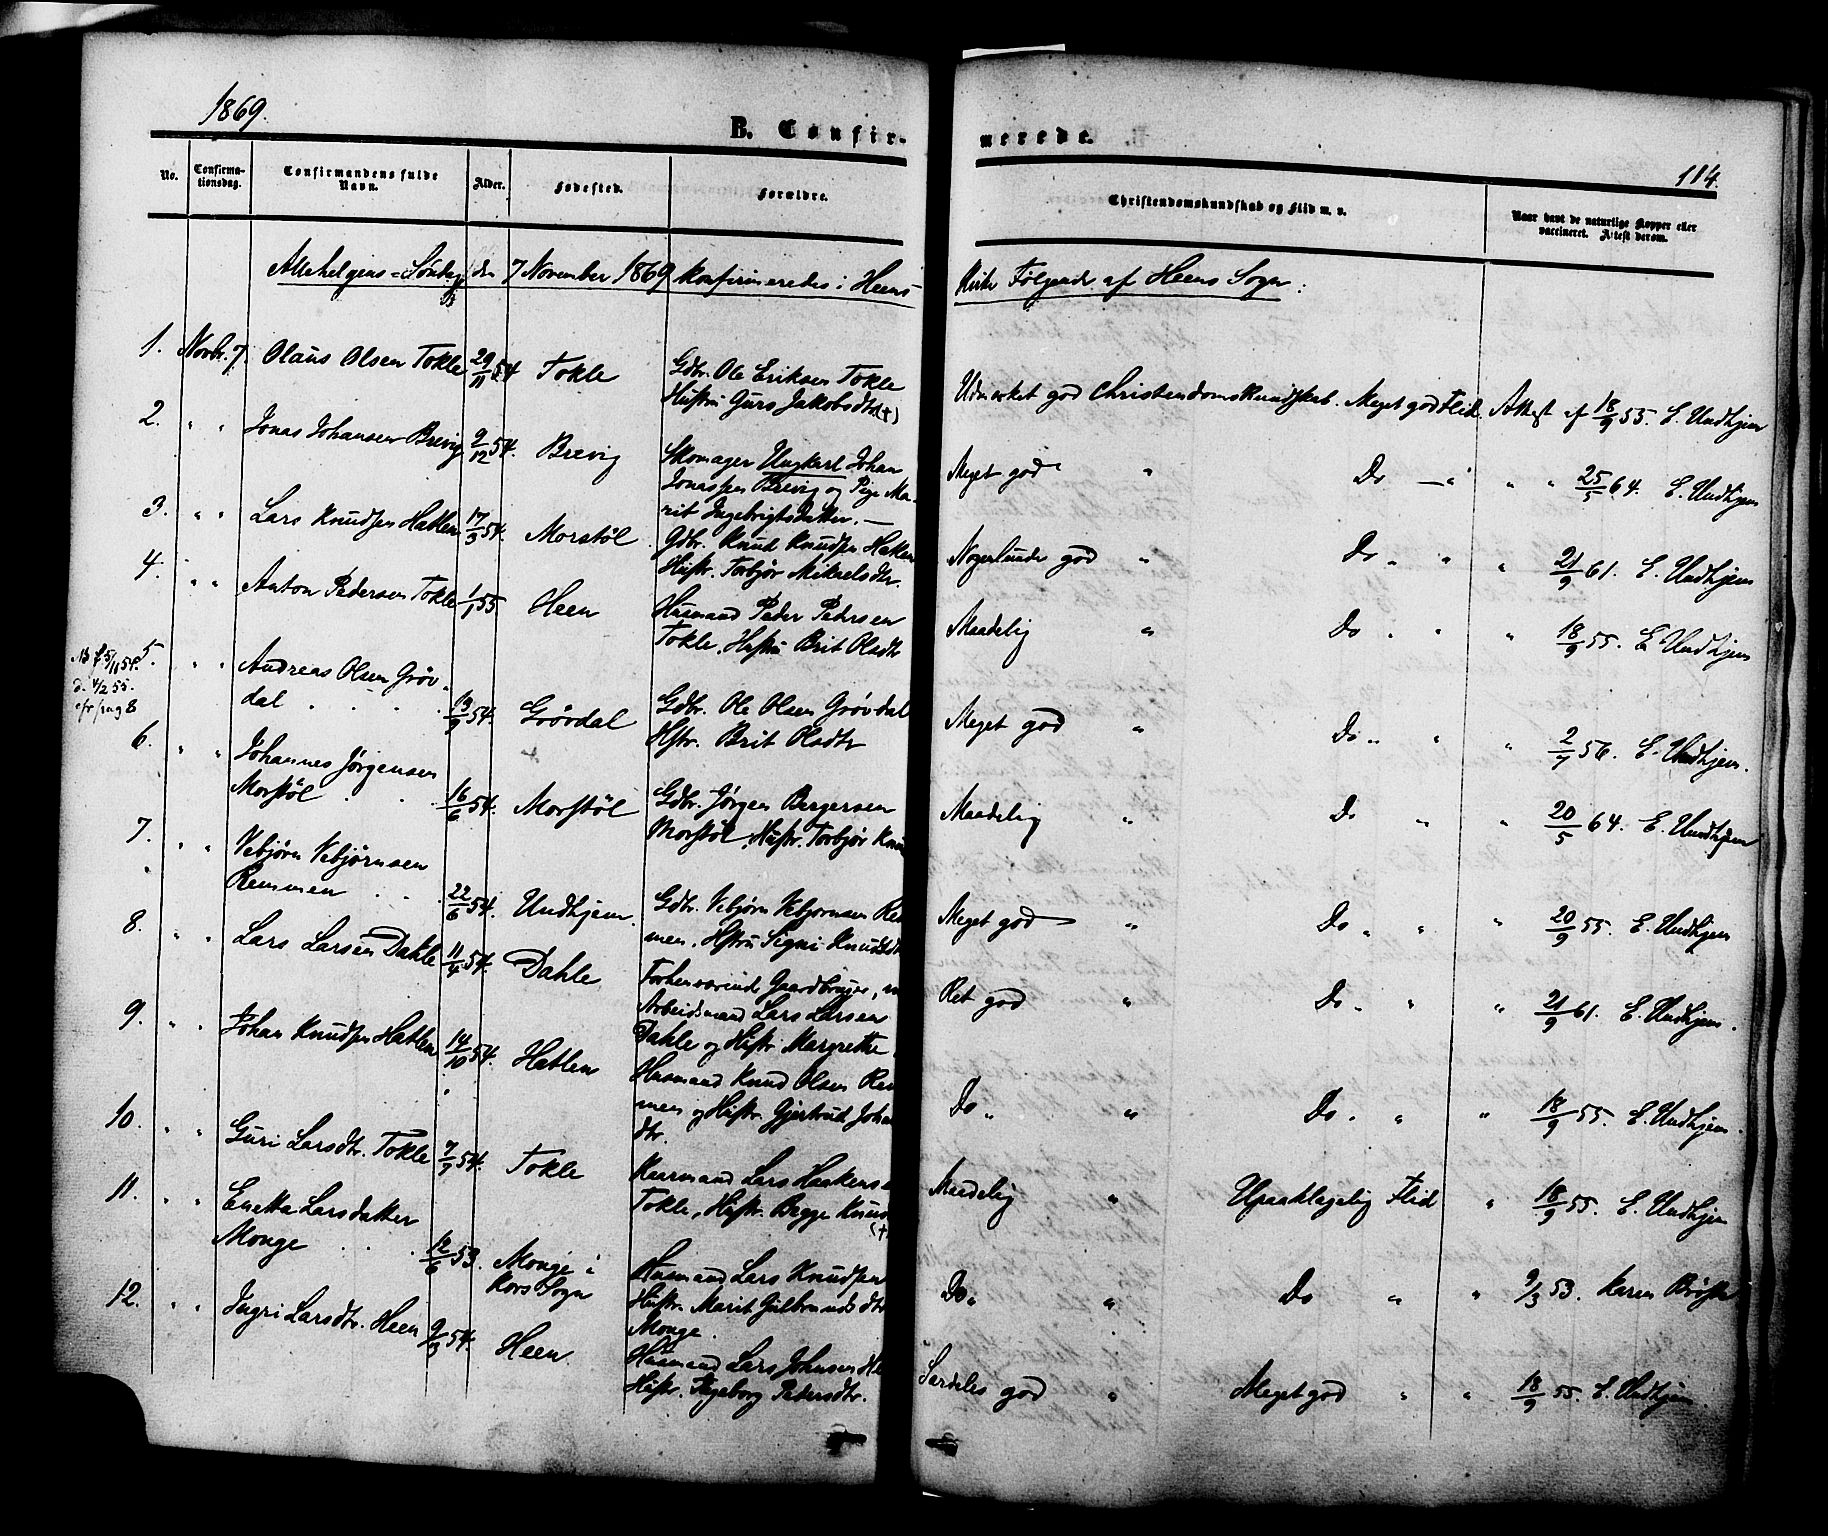 1869.
B. Confir-
merede.
114.
No.
Confirma-
tionsdag.
Confirmandens fulde
Navn.
Alder.
Fødested.
Forældre.
Christendomskundskab og Flid m. v.
Naar havt de naturlige Kopper eller
vaccineret. Attest derom.
Allehelgens-Søndag den 7 November 1869 konfirmeredes i Heens
Kirke Følgende af Heens Sogn:
1. Novbr. 7. Olaus Olsen Tokle 29/11 54 Tokle
Gdbr. Ole Eriksen Tokle
Hustru Guri Jakobsdtr (+)
Udmerket god Christendomskundskab. Meget god Flid. Attest af 18/9 55. E. Undhjem
2. " " Jonas Johansen Brevig 9/12 54. Brevig
Skomager Ungkarl Johan
Jonassen Brevig og Pige Ma-
rit Ingebrigtsdatter. —
Meget god " Do — " " " 25/5 64. E. Undhjem
3. " " Lars Knudsen Hatlen 17/3 54. Morstøl
Gdbr. Knud Knudsen Hatlen
Hustr. Torbjør Mikaelsdtr.
Nogenlunde god " Do " " " 21/9 61. E. Undhjem
4. " " Anton Pedersen Tokle 1/1 55 Heen
Husmand Peder Pedersen
Tokle, Hustru Brit Olsdtr
Maadelig " Do " " " 18/9 55. E. Undhjem
NB f 5/11 54.
d. 4/2 55.
cfr pag 8
5. " " Andreas Olsen Grøv-
dal . . . . 13/9 54. Grøvdal
Gdbr. Ole Olsen Grøvdal
Hstr. Brit Olsdtr
Meget god " Do " " " 2/7 56. E. Undhjem.
6. " " Johannes Jørgensen
Morstøl . . 16/6 54. Morstøl
Gdbr. Jørgen Bergersen
Morstøl, Hustr. Torbjør Knud
Maadelig " Do " " 20/5 64. E. Undhjem
7. " " Vebjørn Vebjørnsen
Remmen . . . 22/6 54. Undhjem.
Gdbr. Vebjørn Vebjørnsen Rem
men, Hstru Signi Knudsdtr
Meget god " Do " " " 20/9 55. E. Undhjem
8. " " Lars Larsen Dahle 11/4 54. Dahle
Forhenværende Gaardbruger, nu
Arbeidsmand Lars Larsen
Dahle og Hstr Margrethe
Ret god " Do " " " 21/9 61. E. Undhjem.
9. " " Johan Knudsen Hatlen 14/10 54. Hatlen
Husmand Knud Olsen Rem
men og Hustr. Gjertrud Johan
dtr.
Do " " Do " " " 18/9 55. E. Undhjem.
10. " " Guri Larsdtr. Tokle 7/9 54. Tokle
Kaarmand Lars Haakensen
Tokle, Hustr. Begge Knud
(+)
Maadelig " Upaaklagelig Flid " 18/9 55. E. Undhjem
11. " " Enetta Larsdatter
Monge . . . . 12/6 53. Monge i
Kors Sogn
Husmand Lars Knudsen
Hustru Marit Gulbrandsdtr
Monge.
Do " " Do " " 9/3 53. Karen Brøste
12. " " Ingri Larsdtr. Heen 9/3 54. Heen.
Husmand Lars Johnsen He
Hustr. Ingeborg Pedersdtr.
Særdeles god " Meget god " " 18/9 55. E. Undhjem